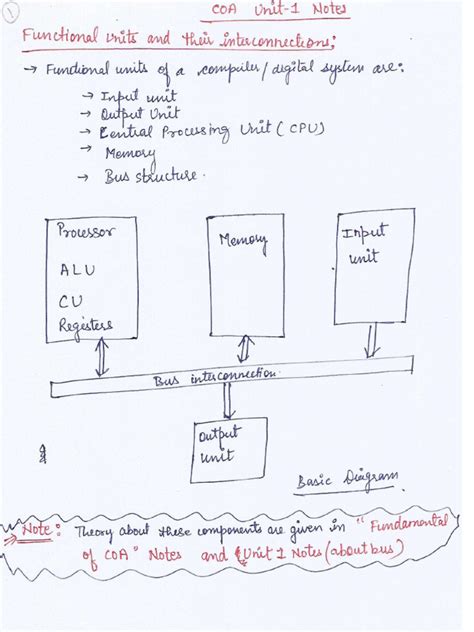 1
COA Unit-1 Notes
Functional Units and their interconnections;
→ Functional units of a computer/digital system are:
→ Input unit
→ Output Unit
→ Central Processing Unit (CPU)
→ Memory
→ Bus structure.
Processor
ALU
CU
Registers
Memory
Input
unit
Bus interconnection
Output
unit
Basic Diagram
→ Note: Theory about these components are given in "Fundamental
of COA" Notes and Unit 1 Notes (about bus)